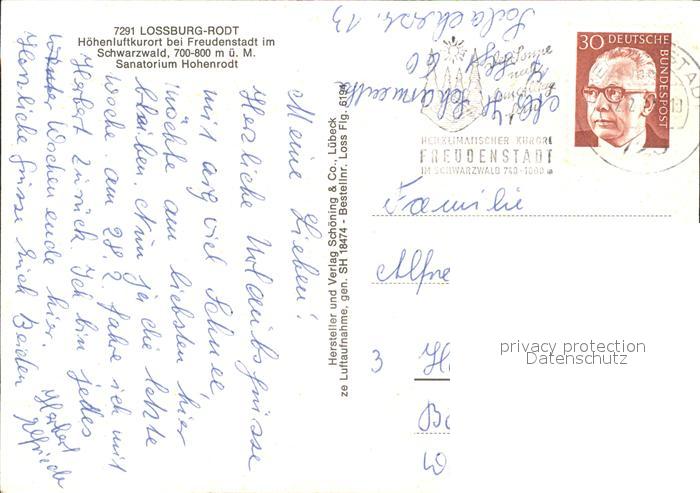 7291 LOSSBURG-RODT
Höhenluftkurort bei Freudenstadt im
Schwarzwald, 700-800 m ü. M.
Sanatorium Hohenrodt
Meine Lieben!
Herzliche Urlaubsgrüsse
mit arg viel Schnee
möchte am liebsten hier
bleiben. Nun ja die letzte
Woche. am 28.2. fahre ich mit
Herbert zurück. Ich bin jedes
Wochenende hier.
Herzliche Grüsse Euch Beiden
Herbert
Hersteller und Verlag Schöning & Co., Lübeck
ze Luftaufnahme, gen. SH 18474 - Bestellnr. Loss Fig. 6194
30 DEUTSCHE
BUNDESPOST
HEILKLIMATISCHER KURORT
FREUDENSTADT
IM SCHWARZWALD 740-1000 m
Familie
Alfre
3
privacy protection
Datenschutz